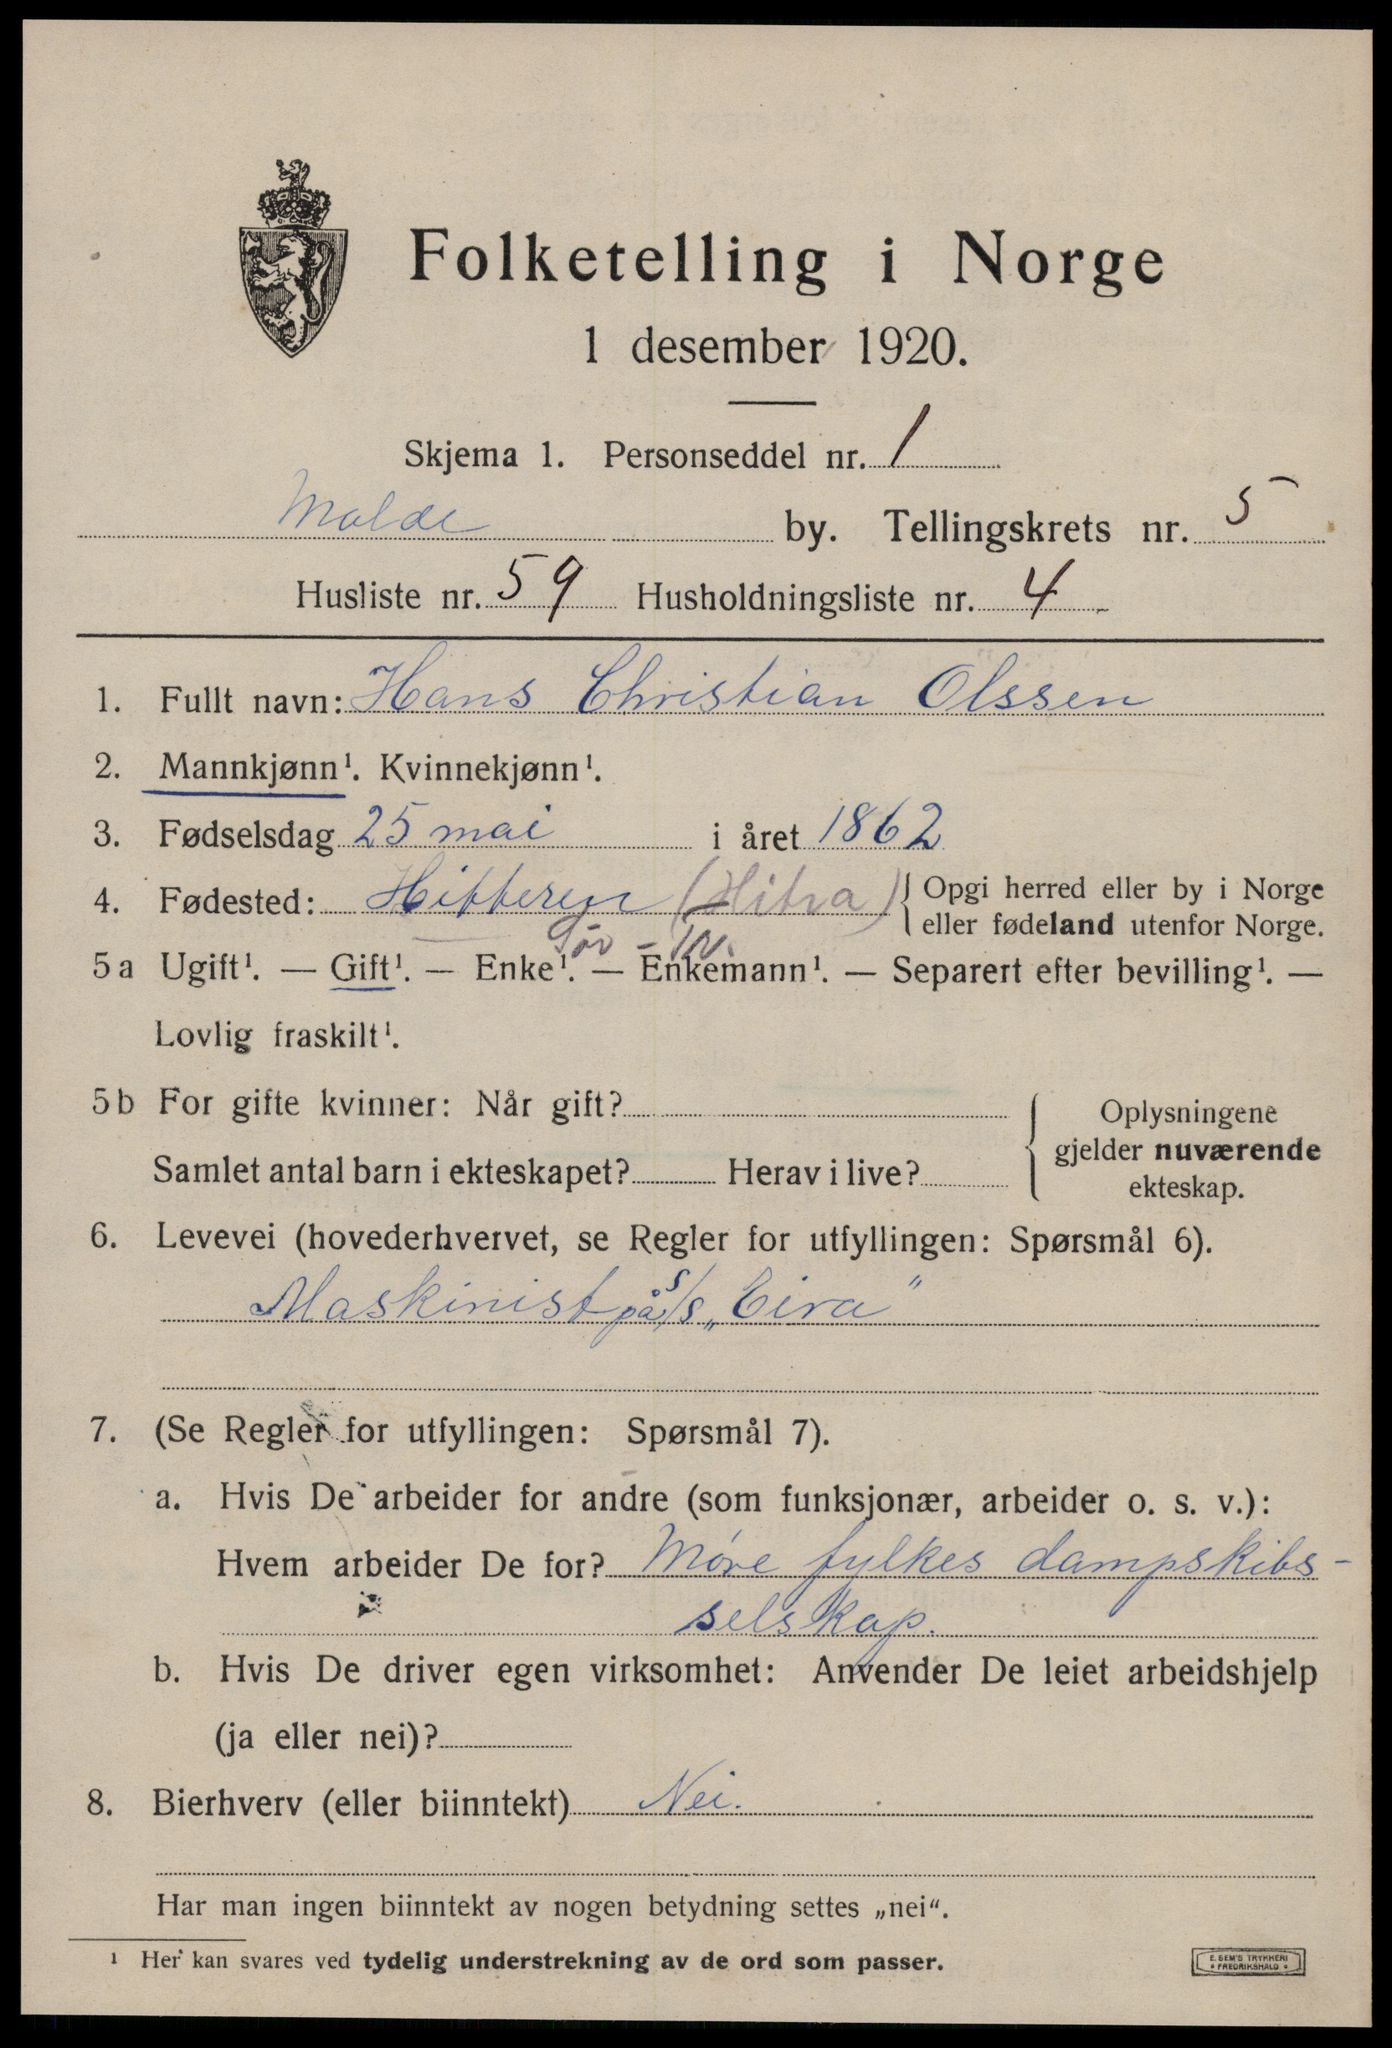 Folketelling i Norge
1 desember 1920.
Skjema 1. Personseddel nr. 1
Molde by. Tellingskrets nr. 5
Husliste nr. 59 Husholdningsliste nr. 4
1. Fullt navn: Hans Christian Olssen
2. Mannkjønn¹. Kvinnekjønn¹.
3. Fødselsdag 25 mai i året 1862
4. Fødested: Hitteren (Hitra) { Opgi herred eller by i Norge
eller fødeland utenfor Norge.
Sør-Tr.
5a Ugift¹. — Gift¹. — Enke¹. — Enkemann¹. — Separert efter bevilling¹. —
Lovlig fraskilt¹.
5b For gifte kvinner: Når gift?
Samlet antal barn i ekteskapet? Herav i live?
Oplysningene
gjelder nuværende
ekteskap.
6. Levevei (hovederhvervet, se Regler for utfyllingen: Spørsmål 6).
Maskinist på s/s „Eira"
7. (Se Regler for utfyllingen: Spørsmål 7).
a. Hvis De arbeider for andre (som funksjonær, arbeider o. s. v.):
Hvem arbeider De for? Møre fylkes dampskibs-
selskap.
b. Hvis De driver egen virksomhet: Anvender De leiet arbeidshjelp
(ja eller nei)?
8. Bierhverv (eller biinntekt) Nei.
Har man ingen biinntekt av nogen betydning settes „nei".
¹ Her kan svares ved tydelig understrekning av de ord som passer.
E. SEM'S TRYKKERI
* FREDRIKSHALD *